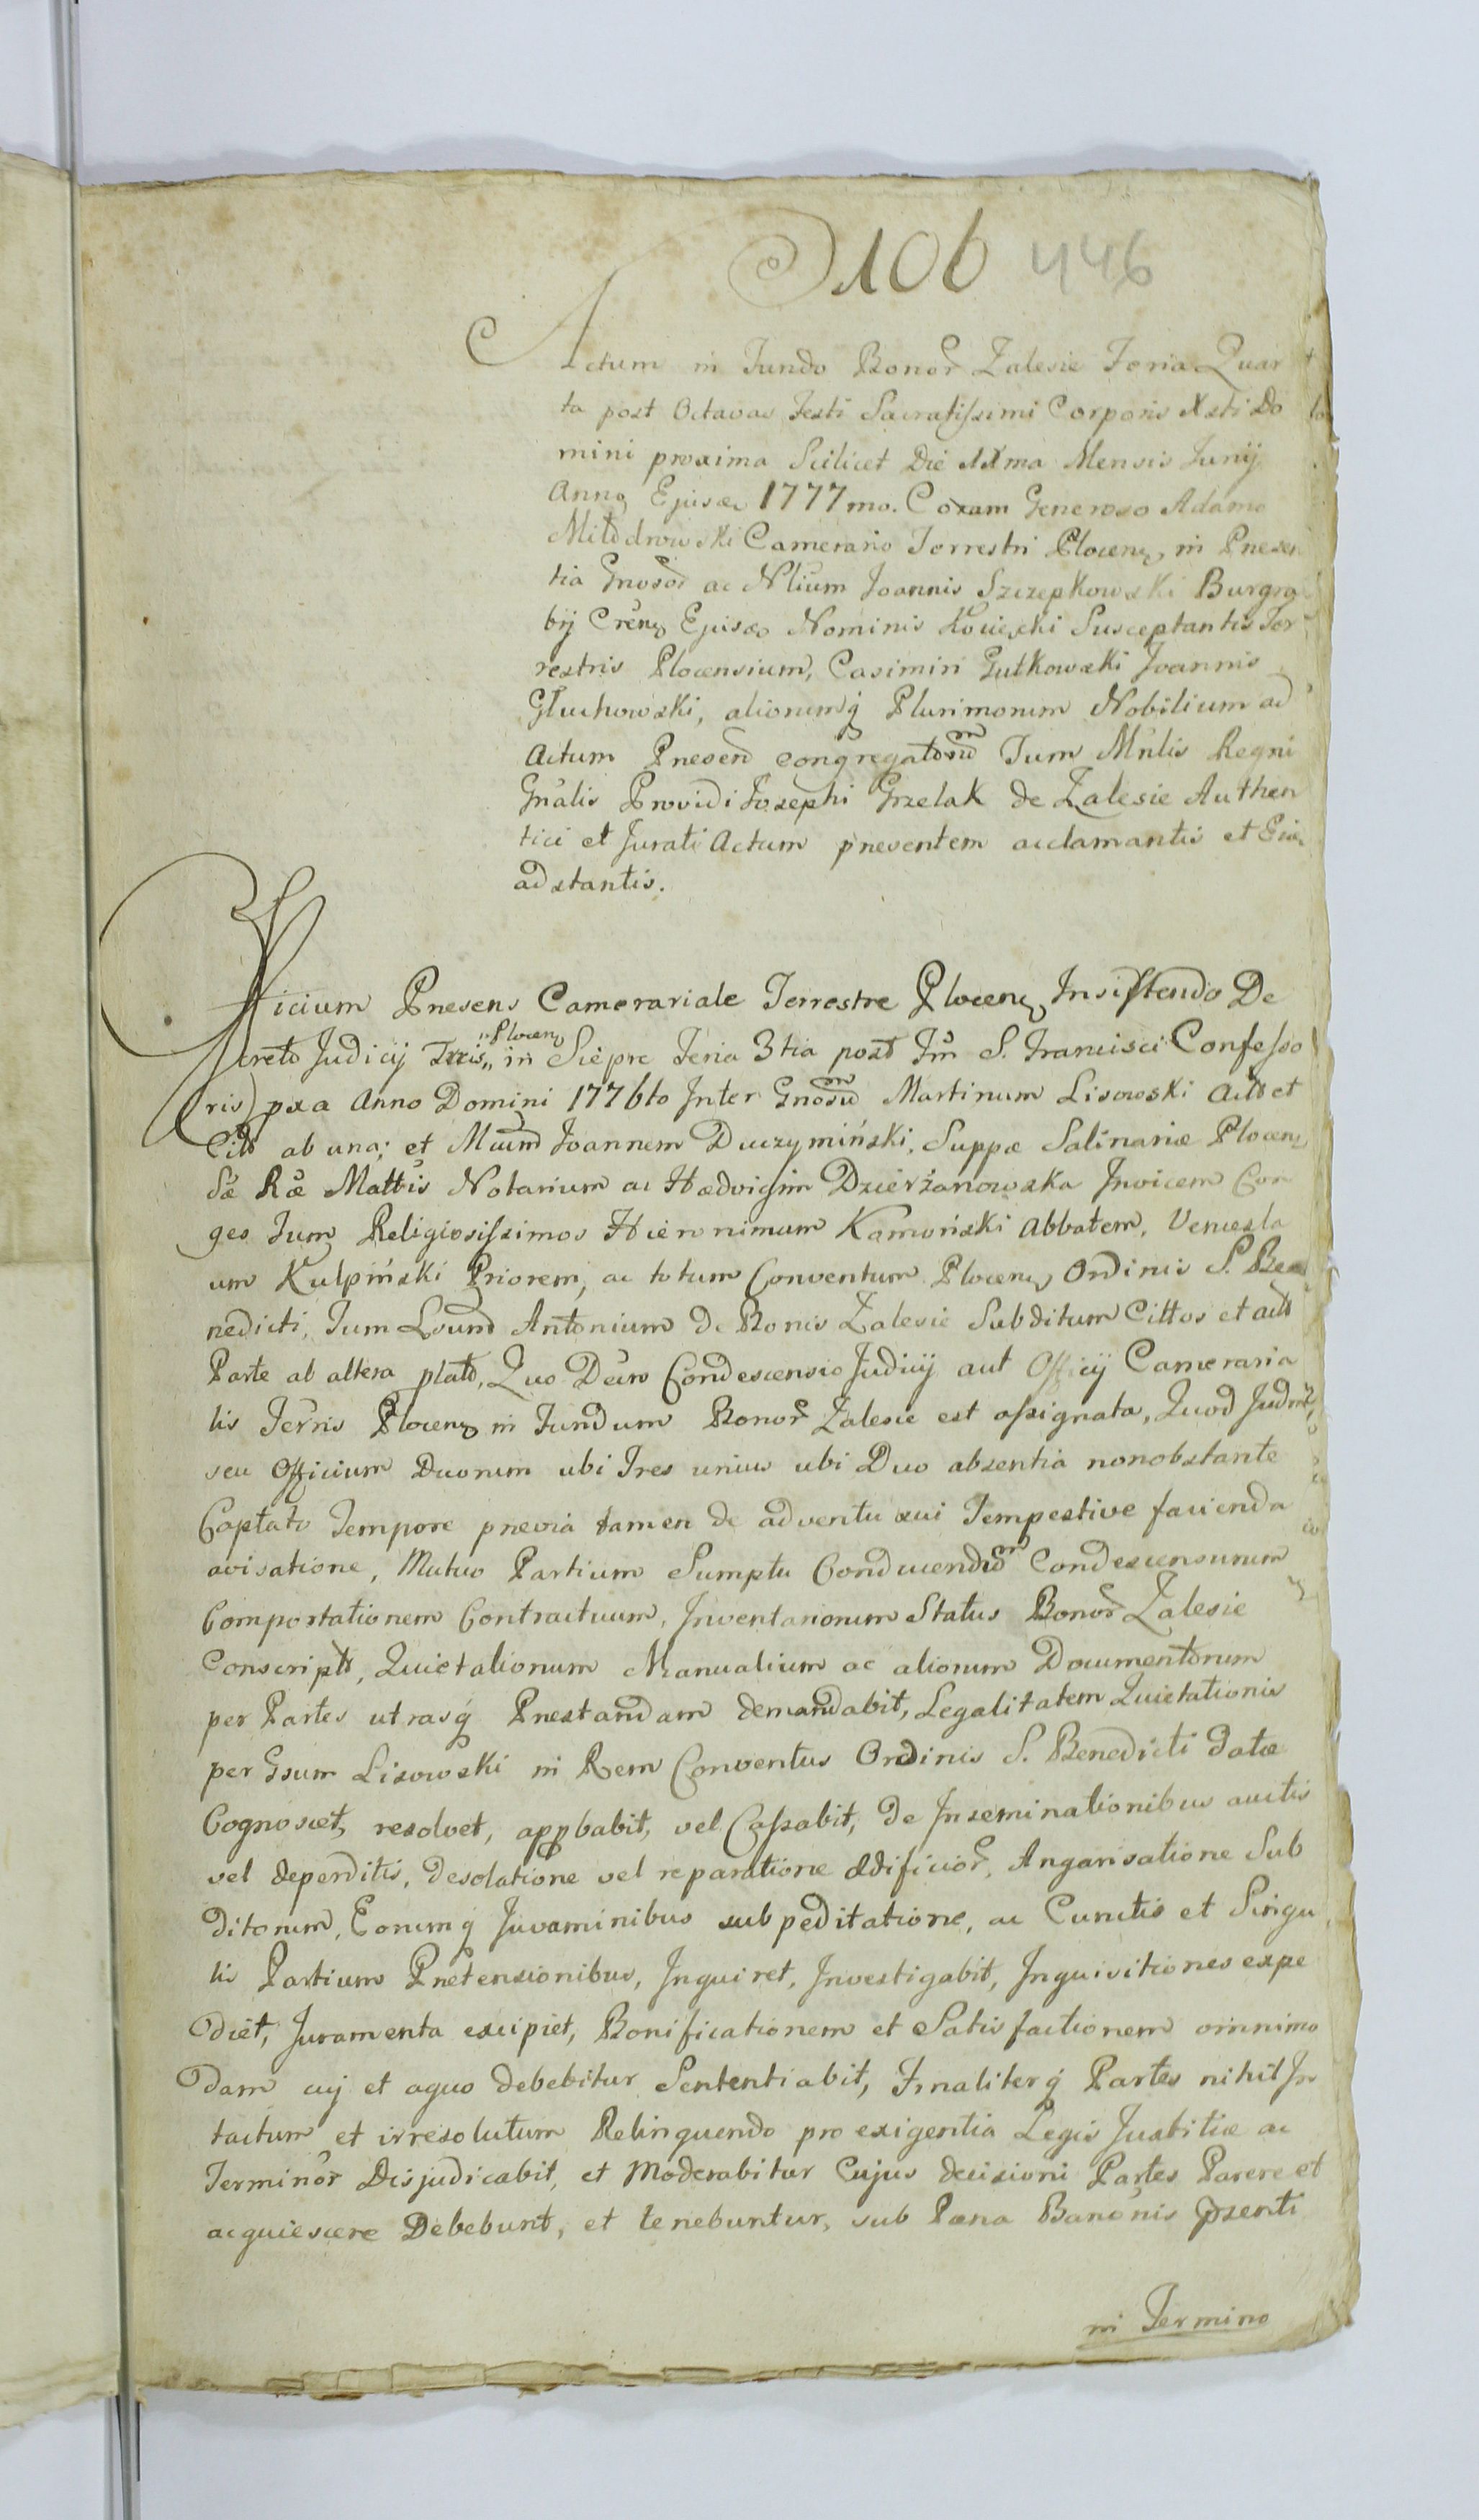 106 446
Actum in Fundo Bonor̃ Zalesie Feria Quar
ta post Octavas Festi Sacratissimi Corporis Xsti Do
mini proxima Scilicet Die Mensis Junij
Anno Ejusd 1777mo. Coram Generoso Adamo
Miłodrowski Camerario Terrestri Plocen, in Presen
tia Gnosor ac Nlium Joannis Szczepkowski Burgra
bij Cren Ejusd Nominis Susceptantis Ter
restris Plocensium, Casimiri Gutkowski Joannis
Głuchowski, aliorumq̃ Plurimorum Nobilium ad
Actum Presend congregatorũ Tum Mnlis Regni
Gnalis Providi Josephi Grzelak de Zalesie Authen
tici et Jurati Actum presentem acclamantis et Eid
adstantis.
Officium Presens Camerariale Terrestre Plocen, Insistendo De
creto Judicij Trris „Plocen„ in Siepre Feria 3tia post Fm S. Francisci Confesso
ris pxa Anno Domini 1776to Inter Gnosũ Martinum Lisowski Act et
Cit ab una; et Mcum Joannem Duczymiński, Suppæ Salinariæ Plocen
Sæ Ræ Mattis Notarium ac Hædvigim Dzierżanowska Invicem Con
ges Tum Religiosissimos Hieronimum Kamoński Abbatem, Vencesla
um Kulpiński Priorem, ac totum Conventum Plocen Ordinis S. Be
nedicti, Tum Antonium de Bonis Zalesie Subditum Cittos et act
Parte ab altera plat, Quo Decro Condescensio Judicij aut Officij Cameraria
lis Terris Plocen in Fundum Bonor̃ Zalesie est assignata, Quod Judm
seu Officium Duorum ubi Tres unius ubi Duo absentia nonobstante
Captato Tempore previa tamen de adventu sui Tempestive facienda
avisatione, Mutuo Partium Sumptu Conducendũ Condescensurum
Comportationem Contractuum, Inventariorum Status Bonor̃ Zalesie
Conscript, Quietationum Manualium ac aliorum Documentorum
per Partes utrasq̃ Prestandam demandabit, Legalitatem Quietationis
per Gsum Lisowski in Rem Conventus Ordinis S. Benedicti datæ
Cognoscet, resolvet, appbabit, vel Cassabit, de Inseminationibus auctis
vel deperditis, desolatione vel reparatione ædificior̃, Angarisatione Sub
ditorum, Eorumq̃ Juvaminibus subpeditatione, ac Cunctis et Singu
lis Partium Pretensionibus, Inquiret, Investigabit, Inquisitiones expe
diet, Juramenta excipiet, Bonificationem et Satisfactionem omnimo
dam cuj et aquo debebitur Sententiabit, Finaliterq̃ Partes nihil In
tactum et irresolutum Relinquendo pro exigentia Legis Justitiæ ac
Terminor̃ Disjudicabit, et Moderabitur Cujus decisioni Partes Parere et
acquiescere Debebunt, et tenebuntur, sub Pæna Banonis psenti
in Termino